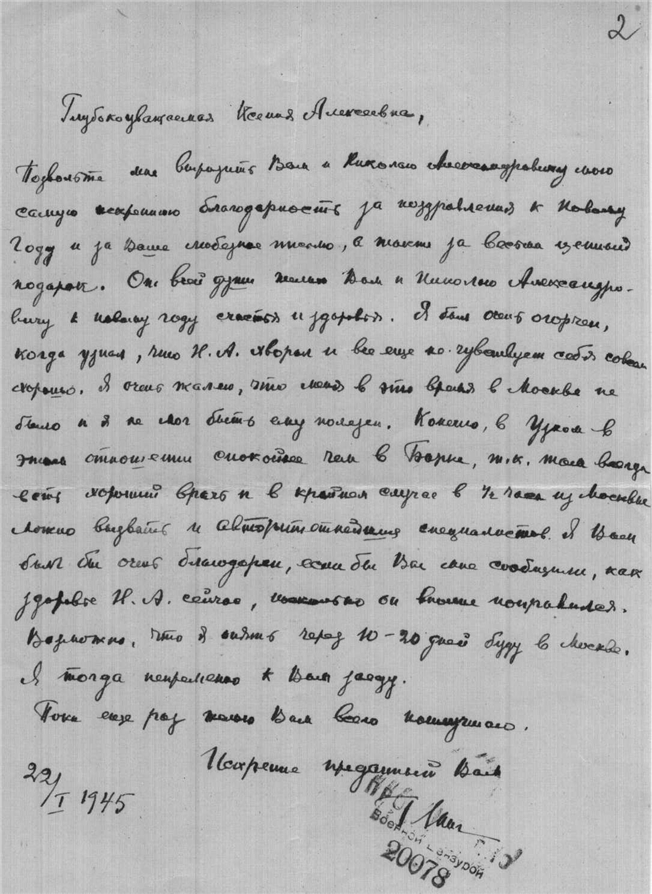 2
Глубокоуважаемая Ксения Алексеевна,
Позвольте мне выразить Вам и Николаю Александровичу мою
самую искреннюю благодарность за поздравления к Новому
Году и за Ваше любезное письмо, а также за весьма ценный
подарок. От всей души желаю Вам и Николаю Александро-
вичу к новому году счастья и здоровья. Я был очень огорчен,
когда узнал, что Н.А. хворал и все еще не чувствует себя совсем
хорошо. Я очень жалею, что меня в это время в Москве не
было и я не мог быть ему полезен. Конечно, в Узком в
этом отношении спокойнее чем в Борке, т.к. там всегда
есть хороший врач и в крайнем случае в ½ часа из Москвы
можно вызвать и авторитетнейших специалистов. Я Вам
был бы очень благодарен, если бы Вы мне сообщили, как
здоровье Н.А. сейчас, насколько он вполне поправился.
Возможно, что я опять через 10-20 дней буду в Москве.
Я тогда непременно к Вам заеду.
Пока еще раз желаю Вам всего наилучшего.
Искренне преданный Вам
22/I 1945
Военной Цензурой
20078